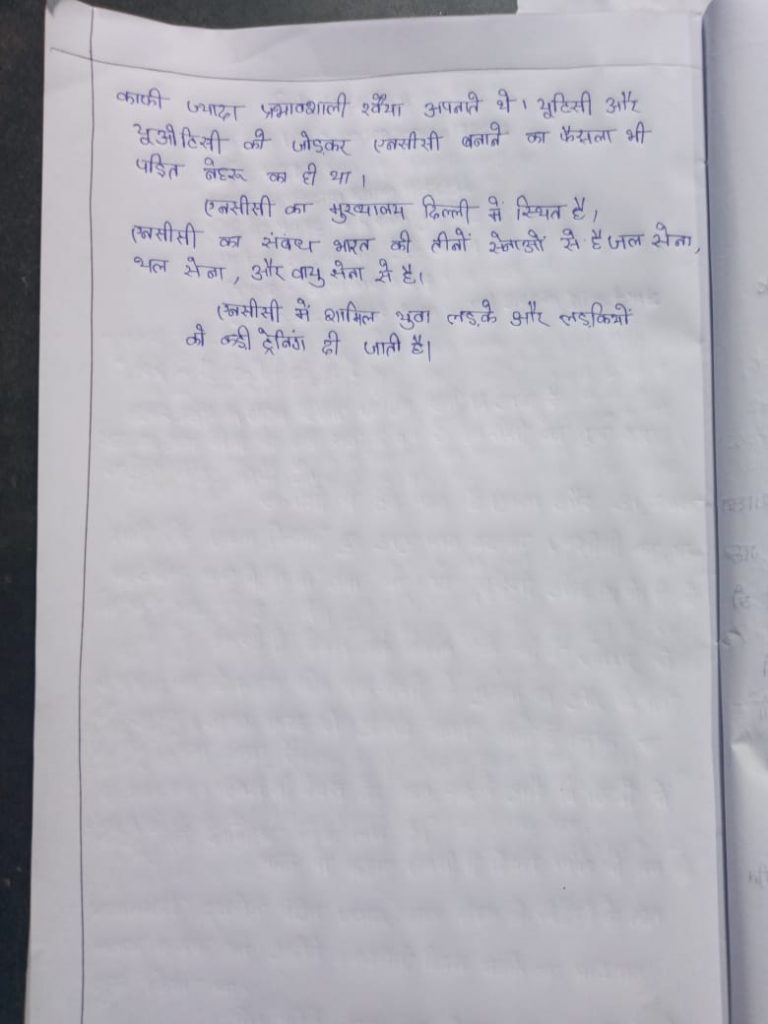 काफी ज्यादा प्रभावशाली रवैया अपनाते थे। यूटिसी और
यूओटिसी को जोड़कर एनसीसी बनाने का फैसला भी
पंडित नेहरू का ही था।
एनसीसी का मुख्यालय दिल्ली में स्थित है,
एनसीसी का संबंध भारत की तीनों सेनाओं से है जल सेना,
थल सेना, और वायु सेना से है।
एनसीसी में शामिल युवा लड़के और लड़कियों
को कड़ी ट्रेनिंग दी जाती है।